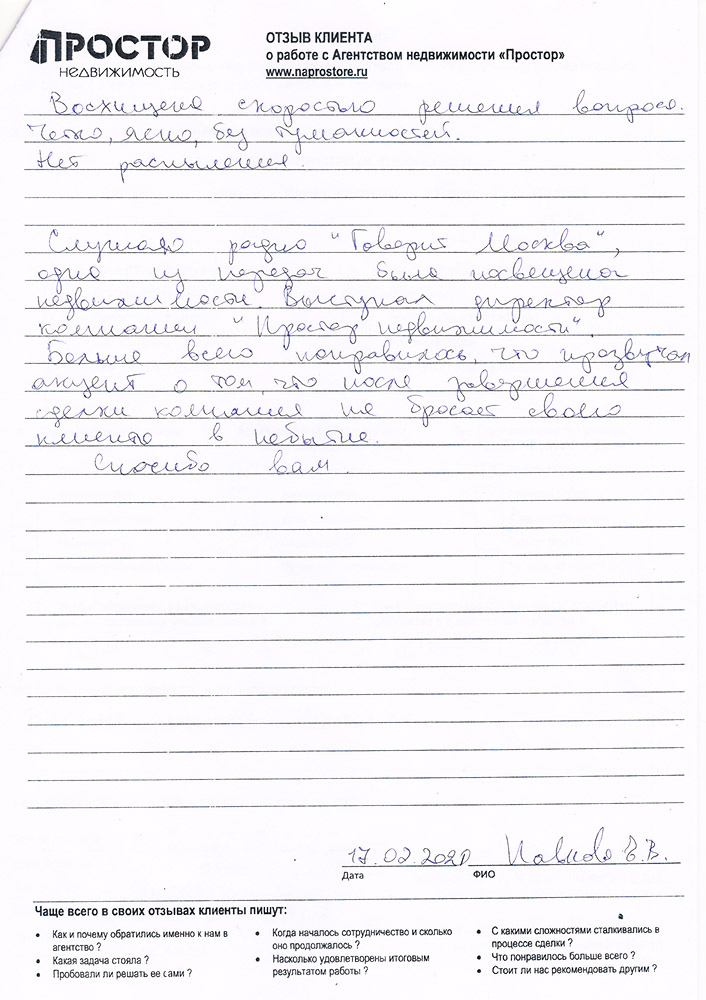 ПРОСТОР
НЕДВИЖИМОСТЬ
ОТЗЫВ КЛИЕНТА
о работе с Агентством недвижимости «Простор»
www.naprostore.ru
Восхищена скоростью решения вопроса.
Четко, ясно, без туманностей.
Нет распыления.
Слушаю радио "Говорит Москва",
одна из передач была посвещена
недвижимости. Выступал директор
компании "Простор недвижимости".
Больше всего понравилось, что прозвучал
акцент о том, что после завершения
сделки компания не бросает своего
клиента в небытие.
Спасибо вам.
17.02.2020
Дата
ФИО
Е.В.
Чаще всего в своих отзывах клиенты пишут:
• Как и почему обратились именно к нам в
агентство ?
• Какая задача стояла ?
• Пробовали ли решать ее сами ?
• Когда началось сотрудничество и сколько
оно продолжалось ?
• Насколько удовлетворены итоговым
результатом работы ?
• С какими сложностями сталкивались в
процессе сделки ?
• Что понравилось больше всего ?
• Стоит ли нас рекомендовать другим ?